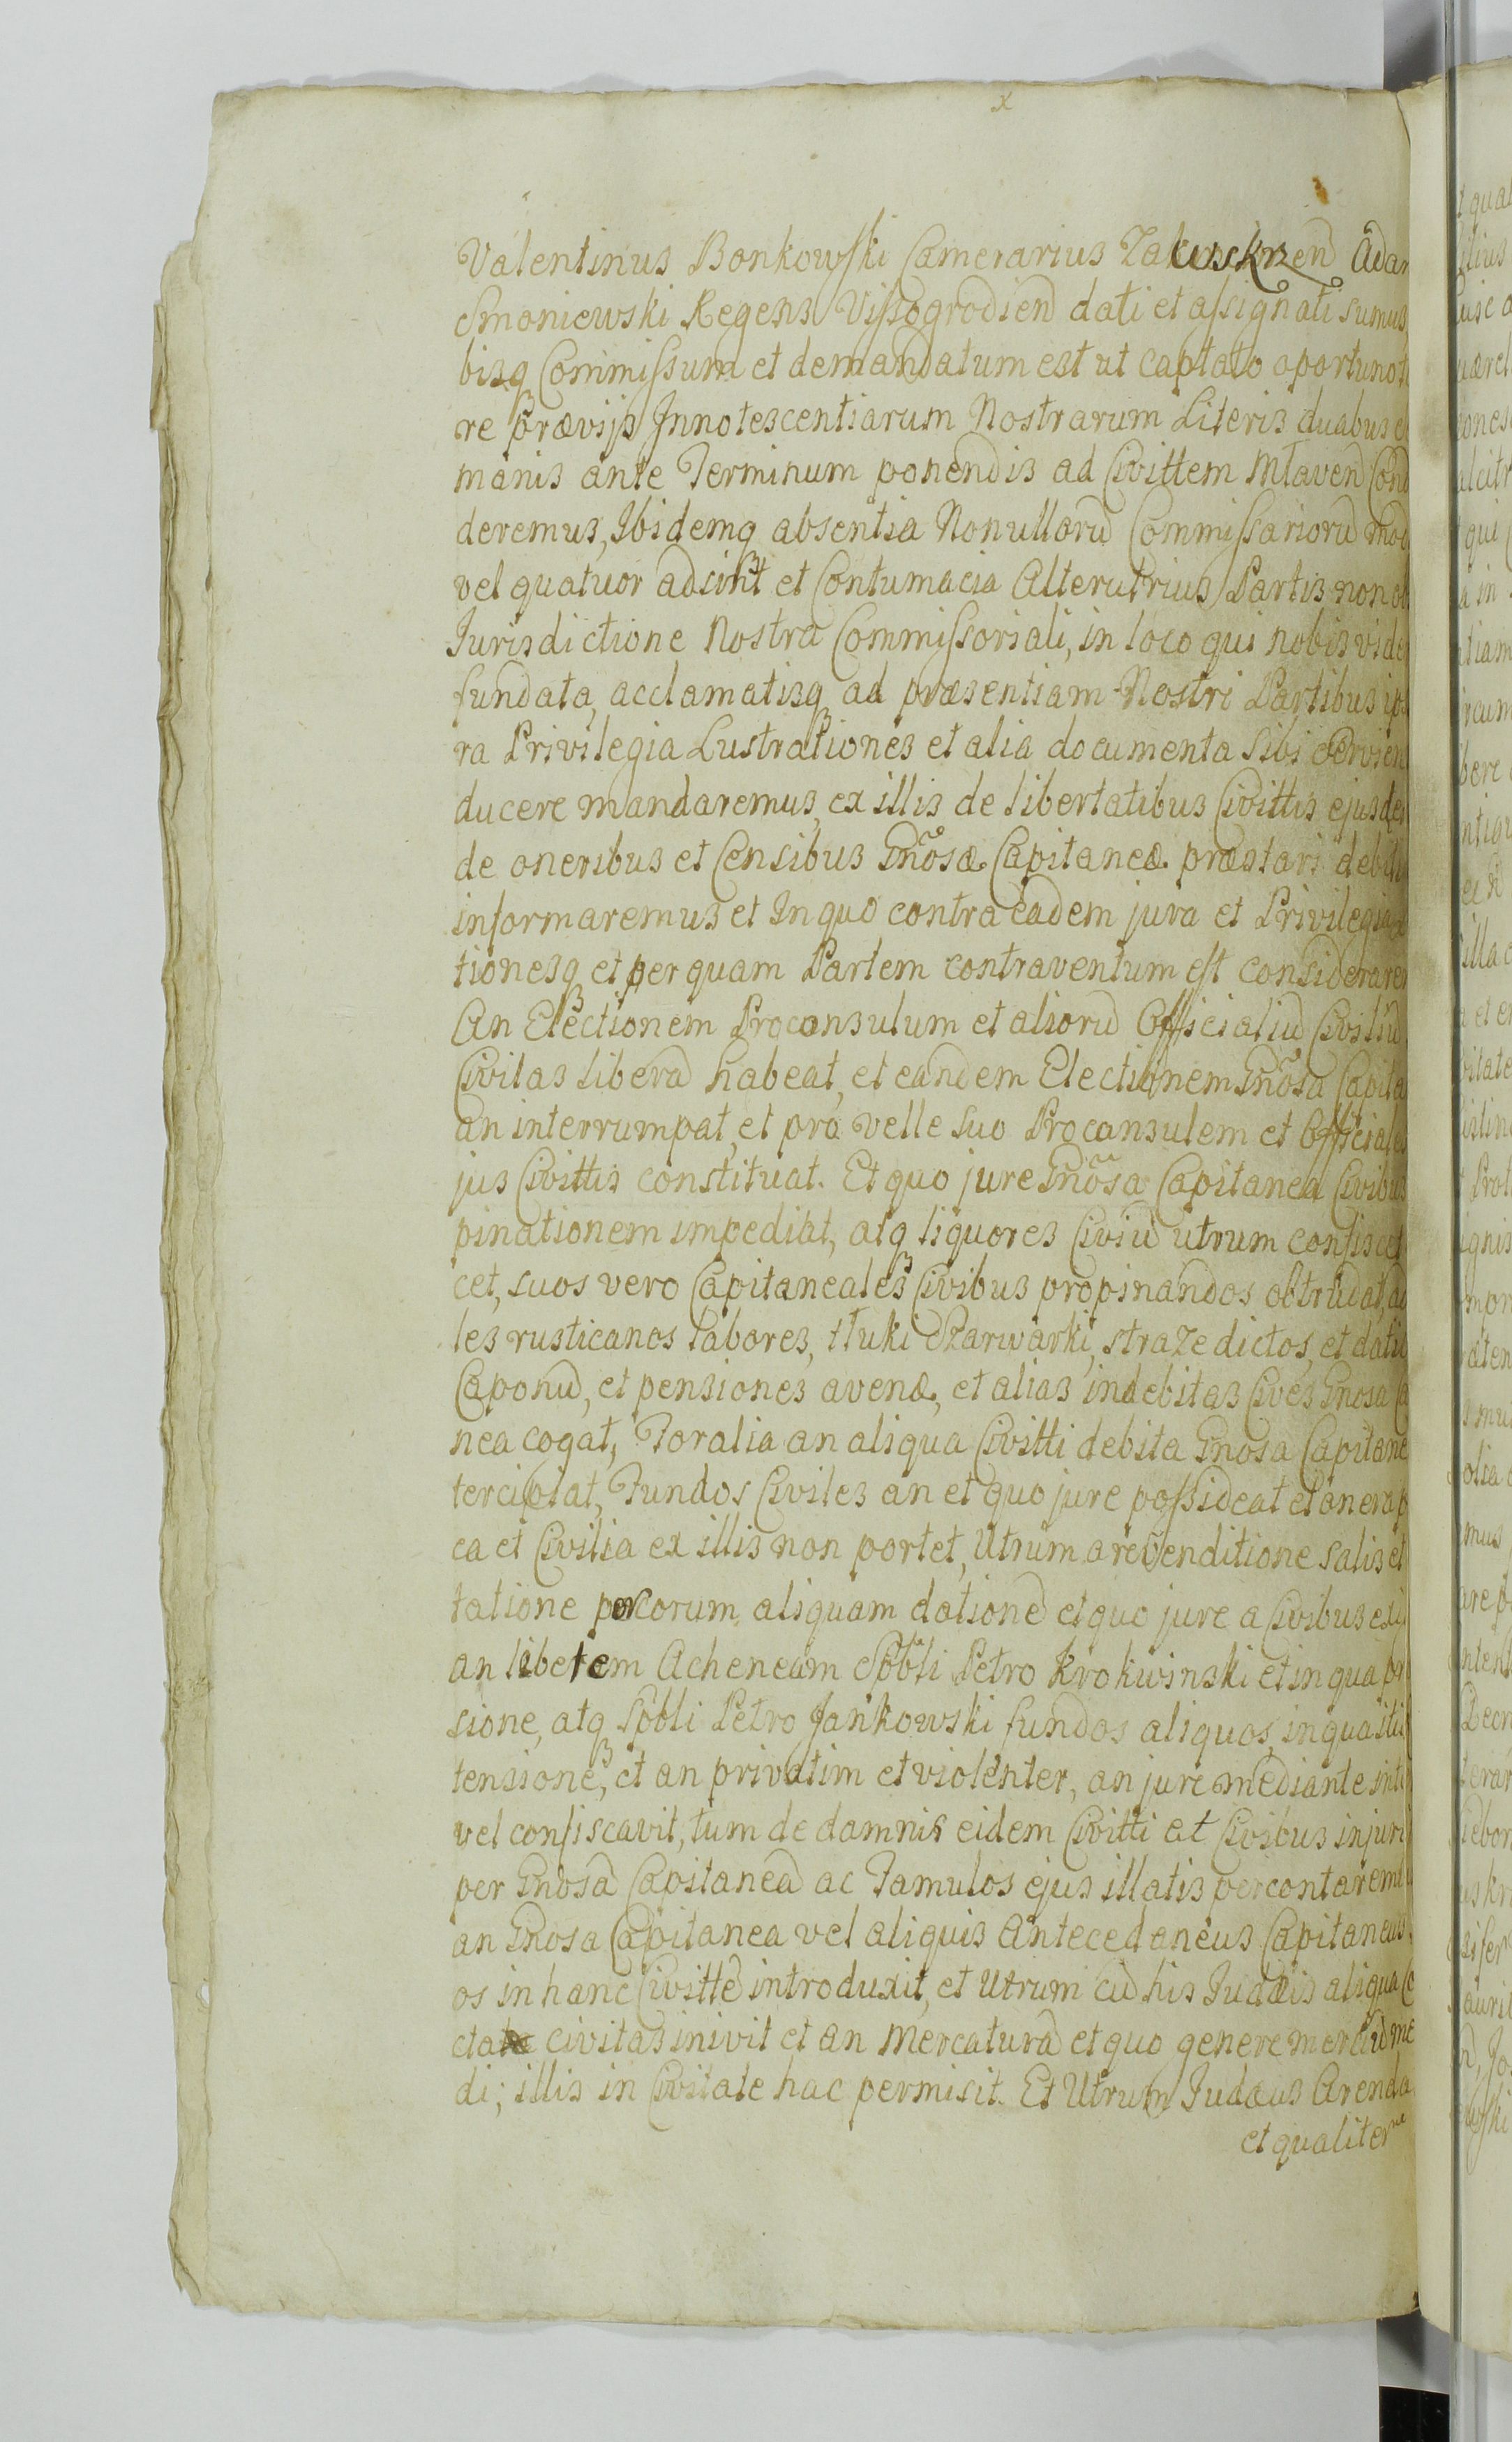 Valentinus Bonkowski Camerarius Zakroczÿmen Adam
Smoniewski Regens Vissogrodien dati et assignati sumus
bisq Commissum et demandatum est ut captato oportuno t
re prævijs Innotescentiarum Nostrarum Literis duabus
manis ante Terminum ponendis ad Civittem Mlaven Con
deremus, Ibidemq absentia Nonulloru Commissarioru mod
vel quatuor adsint et Contumacia Alterutrius Partis non ob
Jurisdictione Nostra Commissoriali, in loco qui nobis vide
fundata, acclamatisq ad præsentiam Nostri Partibus ips
ra Privilegia Lustrationes et alia documenta sibi servien
ducere mandaremus, ex illis de libertatibus Civittis ejusdem
de oneribus et Censibus Gnosæ Capitaneæ præstari debitis
informaremus et In quo contra eadem jura et Privilegia
tionesq et per quam Partem contraventum est considerarem
An Electionem Proconsulum et alioru Officialiu Civiliu
Civitas libera habeat, et eandem Electionem Gnosa Capita
an interrumpat, et pro velle suo Proconsulem et Officiales
jus Civittis constituat. Et quo jure Gnosa Capitanea Civibus
pinationem impediat, atq liquores Civiu utrum confiscet
cet, suos vero Capitaneales Civibus propinandos obtrudat, ad
les rusticanos labores, tłuki Szarwarki, straże dictos, et datio
Caponu, et pensiones avenæ, et alias indebitas Cives Gnosa Ca
nea cogat, Foralia an aliqua Civitti debita Gnosa Capitane
tercipiat, Fundos Civiles an et quo jure possideat et onera p
ca et Civilia ex illis non portet, Utrum a revenditione salis et
tatione porcorum aliquam datione et quo jure a Civibus exi
an libertem Acheneam Spbli Petro Krokwinski et in qua pr
sione, atq Spbli Petro Jankowski fundos aliquos, in qua iti
tensione, et an privatim et violenter, an jure mediante int
vel confiscavit, tum de damnis eidem Civitti et Civibus injuri
per Gnosa Capitanea ac Famulos ejus illatis percontaremu
an Gnosa Capitanea vel aliquis Antecedaneus Capitaneus
os in hanc Civitte introduxit, et Utrum cu his Judæis aliqua C
ctata civitas inivit et an Mercatura et quo genere merciu me
di; illis in Civitate hac permisit. Et Utrum Judæus Arenda
et qualiter